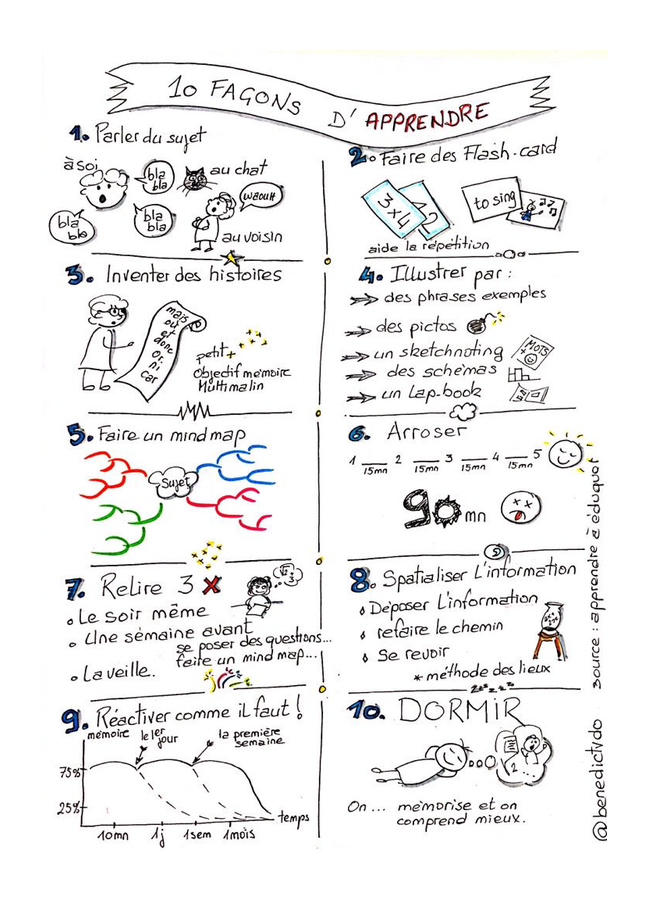 10 FAÇONS D'APPRENDRE
1. Parler du sujet
à soi
bla bla
au chat
waouh
bla bla
bla bla
au voisin
2. Faire des Flash-card
3x4
12
to sing
aide la répétition
3. Inventer des histoires
mais
où
et
donc
or
ni
car
petit +
Objectif mémoire
Multimalin
4. Illustrer par :
des phrases exemples
des pictos
un sketchnoting
MOTS
+
des schémas
un Lap-book
5. Faire un mind map
Sujet
6. Arroser
1 __ 2 __ 3 __ 4 __ 5
15mn 15mn 15mn 15mn
90 mn
7. Relire 3 X
Le soir même
Une semaine avant
se poser des questions...
faire un mind map...
La veille.
8. Spatialiser L'information
Déposer L'information
refaire le chemin
Se revoir
* méthode des lieux
9. Réactiver comme il faut !
mémoire
le 1er jour
la première semaine
75%
25%
temps
10mn 1j 1sem 1mois
zzzzzz
10. DORMIR
2
On ... mémorise et on
comprend mieux.
@benedictvdo source : apprendre à éduquer